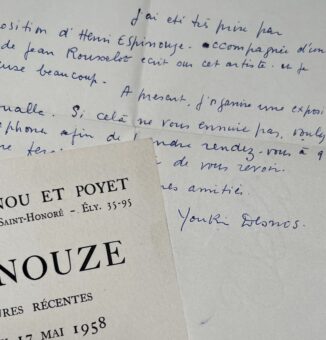 J'ai été très prise par
position d'Henri Espinouze. accompagnée d'un
de Jean Rousselot écrit sur cet artiste. et je
euse beaucoup.
A present, j'organise une exposi
oualle. Si celà ne vous ennuie pas, voulez
phone afin de prendre rendez-vous à q
de vous revoir.
amitiés.
Youki Desnos.
NOU ET POYET
SAINT-HONORÉ - ÉLY. 35-95
NOUZE
URES RÉCENTES
17 MAI 1958